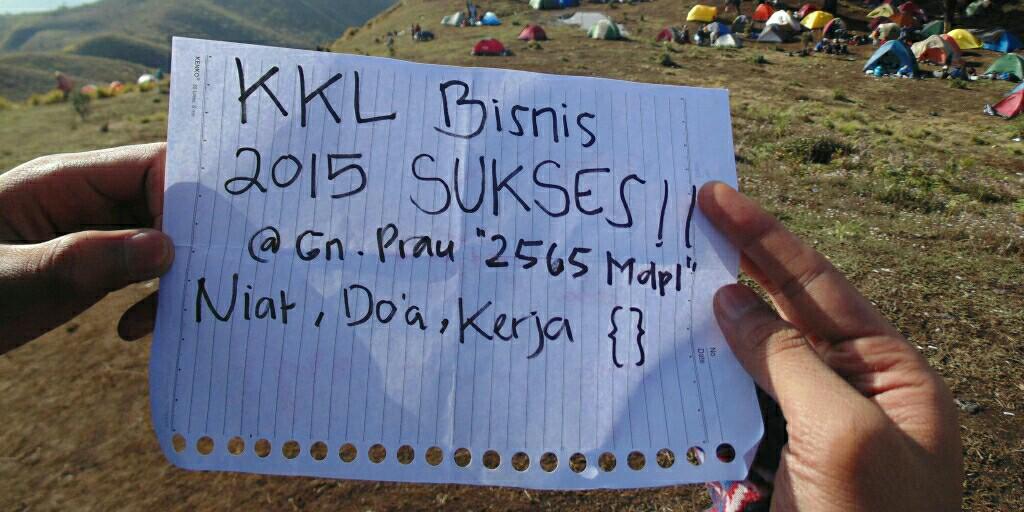 KKL Bisnis
2015 SUKSES!!
@ Gn. Prau "2565 Mdpl"
Niat, Do'a, Kerja {}
KENKO
No
Date